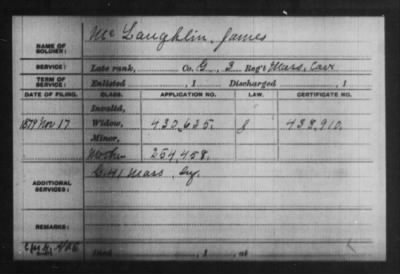 NAME OF SOLDIER: McLaughlin, James
SERVICE: Late rank, Co. G, 3 Reg't Mass. Cav.
TERM OF SERVICE: Enlisted , 1 Discharged , 1
DATE OF FILING. CLASS. APPLICATION NO. LAW. CERTIFICATE NO.
Invalid,
1879 Nov 17 Widow, 432,635. 438,910.
Minor,
Mother 254,458.
ADDITIONAL SERVICES: G. 41 Mass. Inf.
REMARKS:
Died , 1 , at